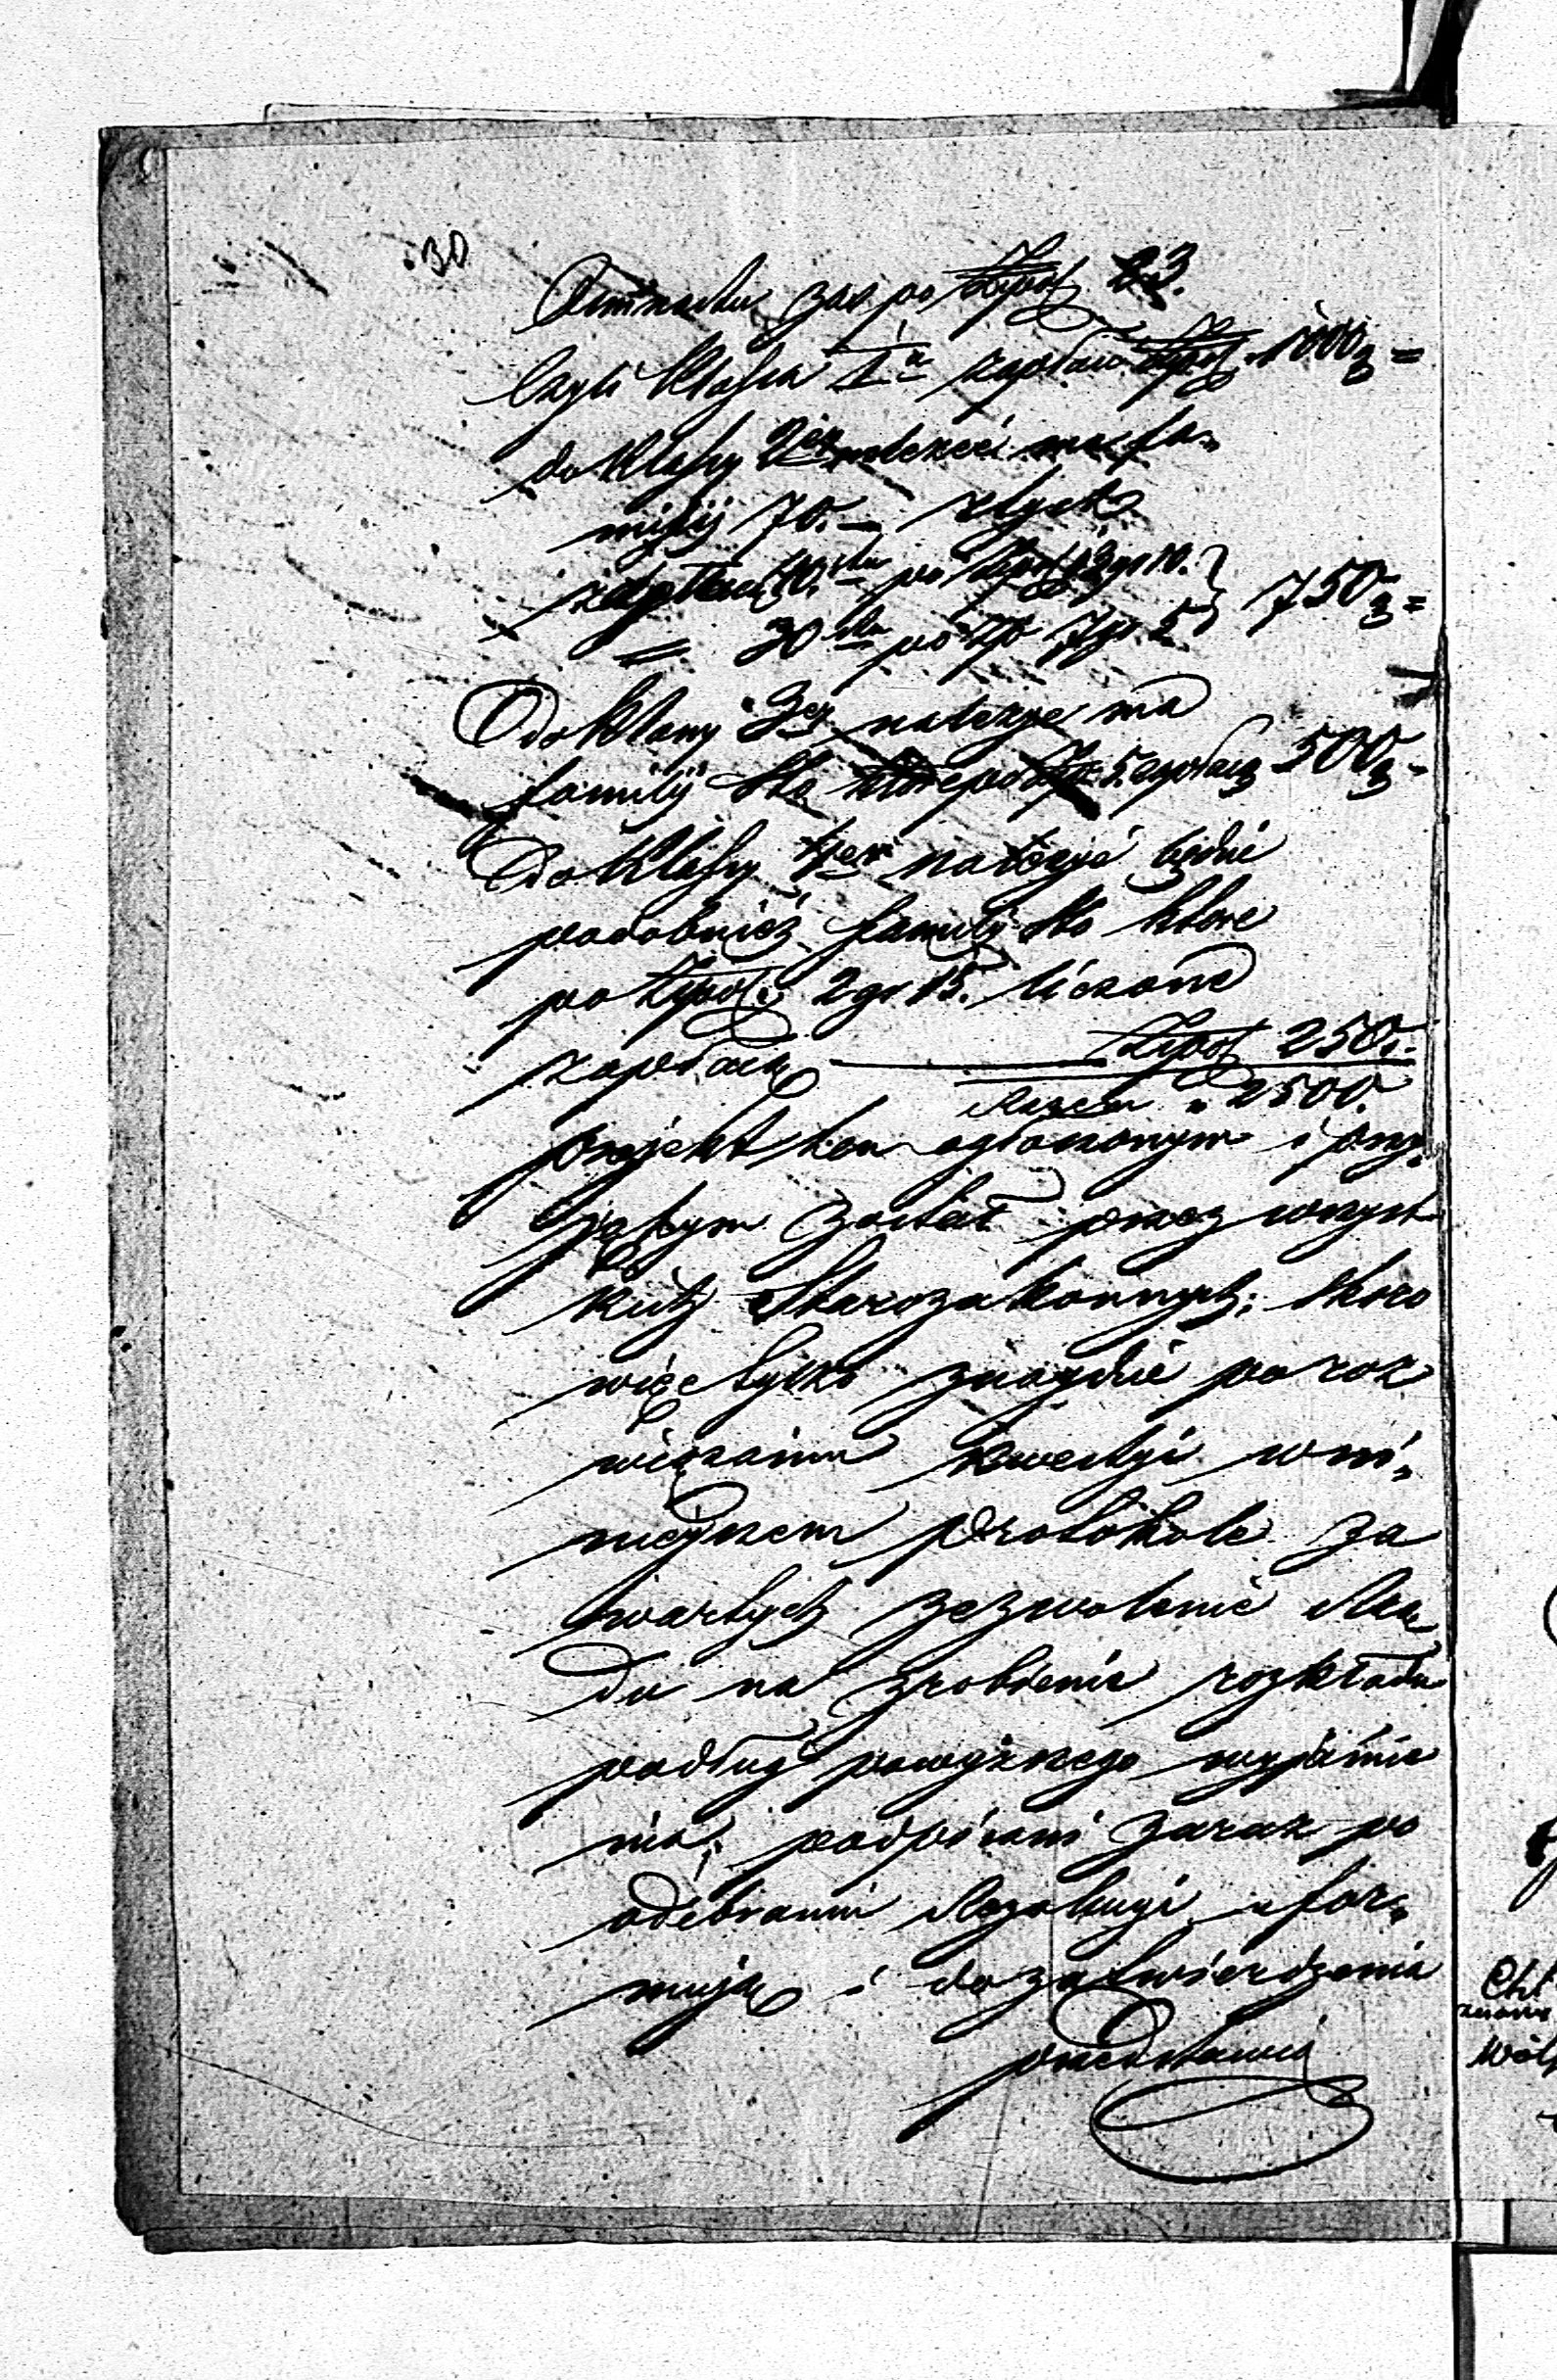 30
Ośmnastu zaś po Złpol 23.
Czyli Klassa 1a zapłaci Złpol 1000
do Klassy 2ey należeć ma fa„
milij 70. — z tych
40stu po Złpol 13 gr 10. } 750
= 30stu po Złp 7 gr 5
Do Klassy 3ey należyć ma
familij sto które po Złp 5 zapłacą 500
Do Klassy 4ey należyć będzie
podobnież familij sto które
po Złpol: 2 gr 15. liczone
zapłacą — Złpol 250.
Razem „ 2500.
Projekt ten ogłoszonym i przy„
jętym został przez wszyst
kich Starozakonnych; skoro
więc tylko znaydzie po roz
wiązaniu kwestyi w ni„
nieyszem Protokole za
wartych zezwolenie Rzą
du na zrobienie rozkładu
podług powyższego wyjaśnie
nia, podpisani zaraz po
odebraniu Rezolucyi ufor„
mują i do zatwierdzenia
przedstawią
Chł
znane
Wolf